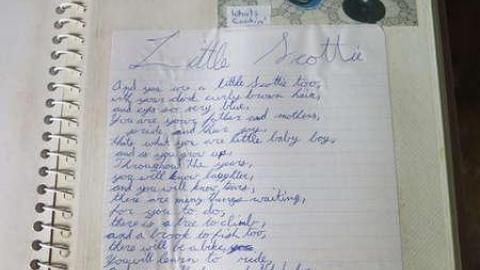 What's
Cookin'
Little Scottie
And you are a little Scottie too,
with your dark curly brown hair,
and eyes so very blue,
You are your father and mothers,
pride and dear joy,
thats what you are little baby boy,
and as you grow up,
Throughout the years,
you will know laughter,
and you will know tears,
there are many things waiting,
for you to do,
there is a tree to climb,
and a brook to fish too,
there will be a bike
You will learn to ride,